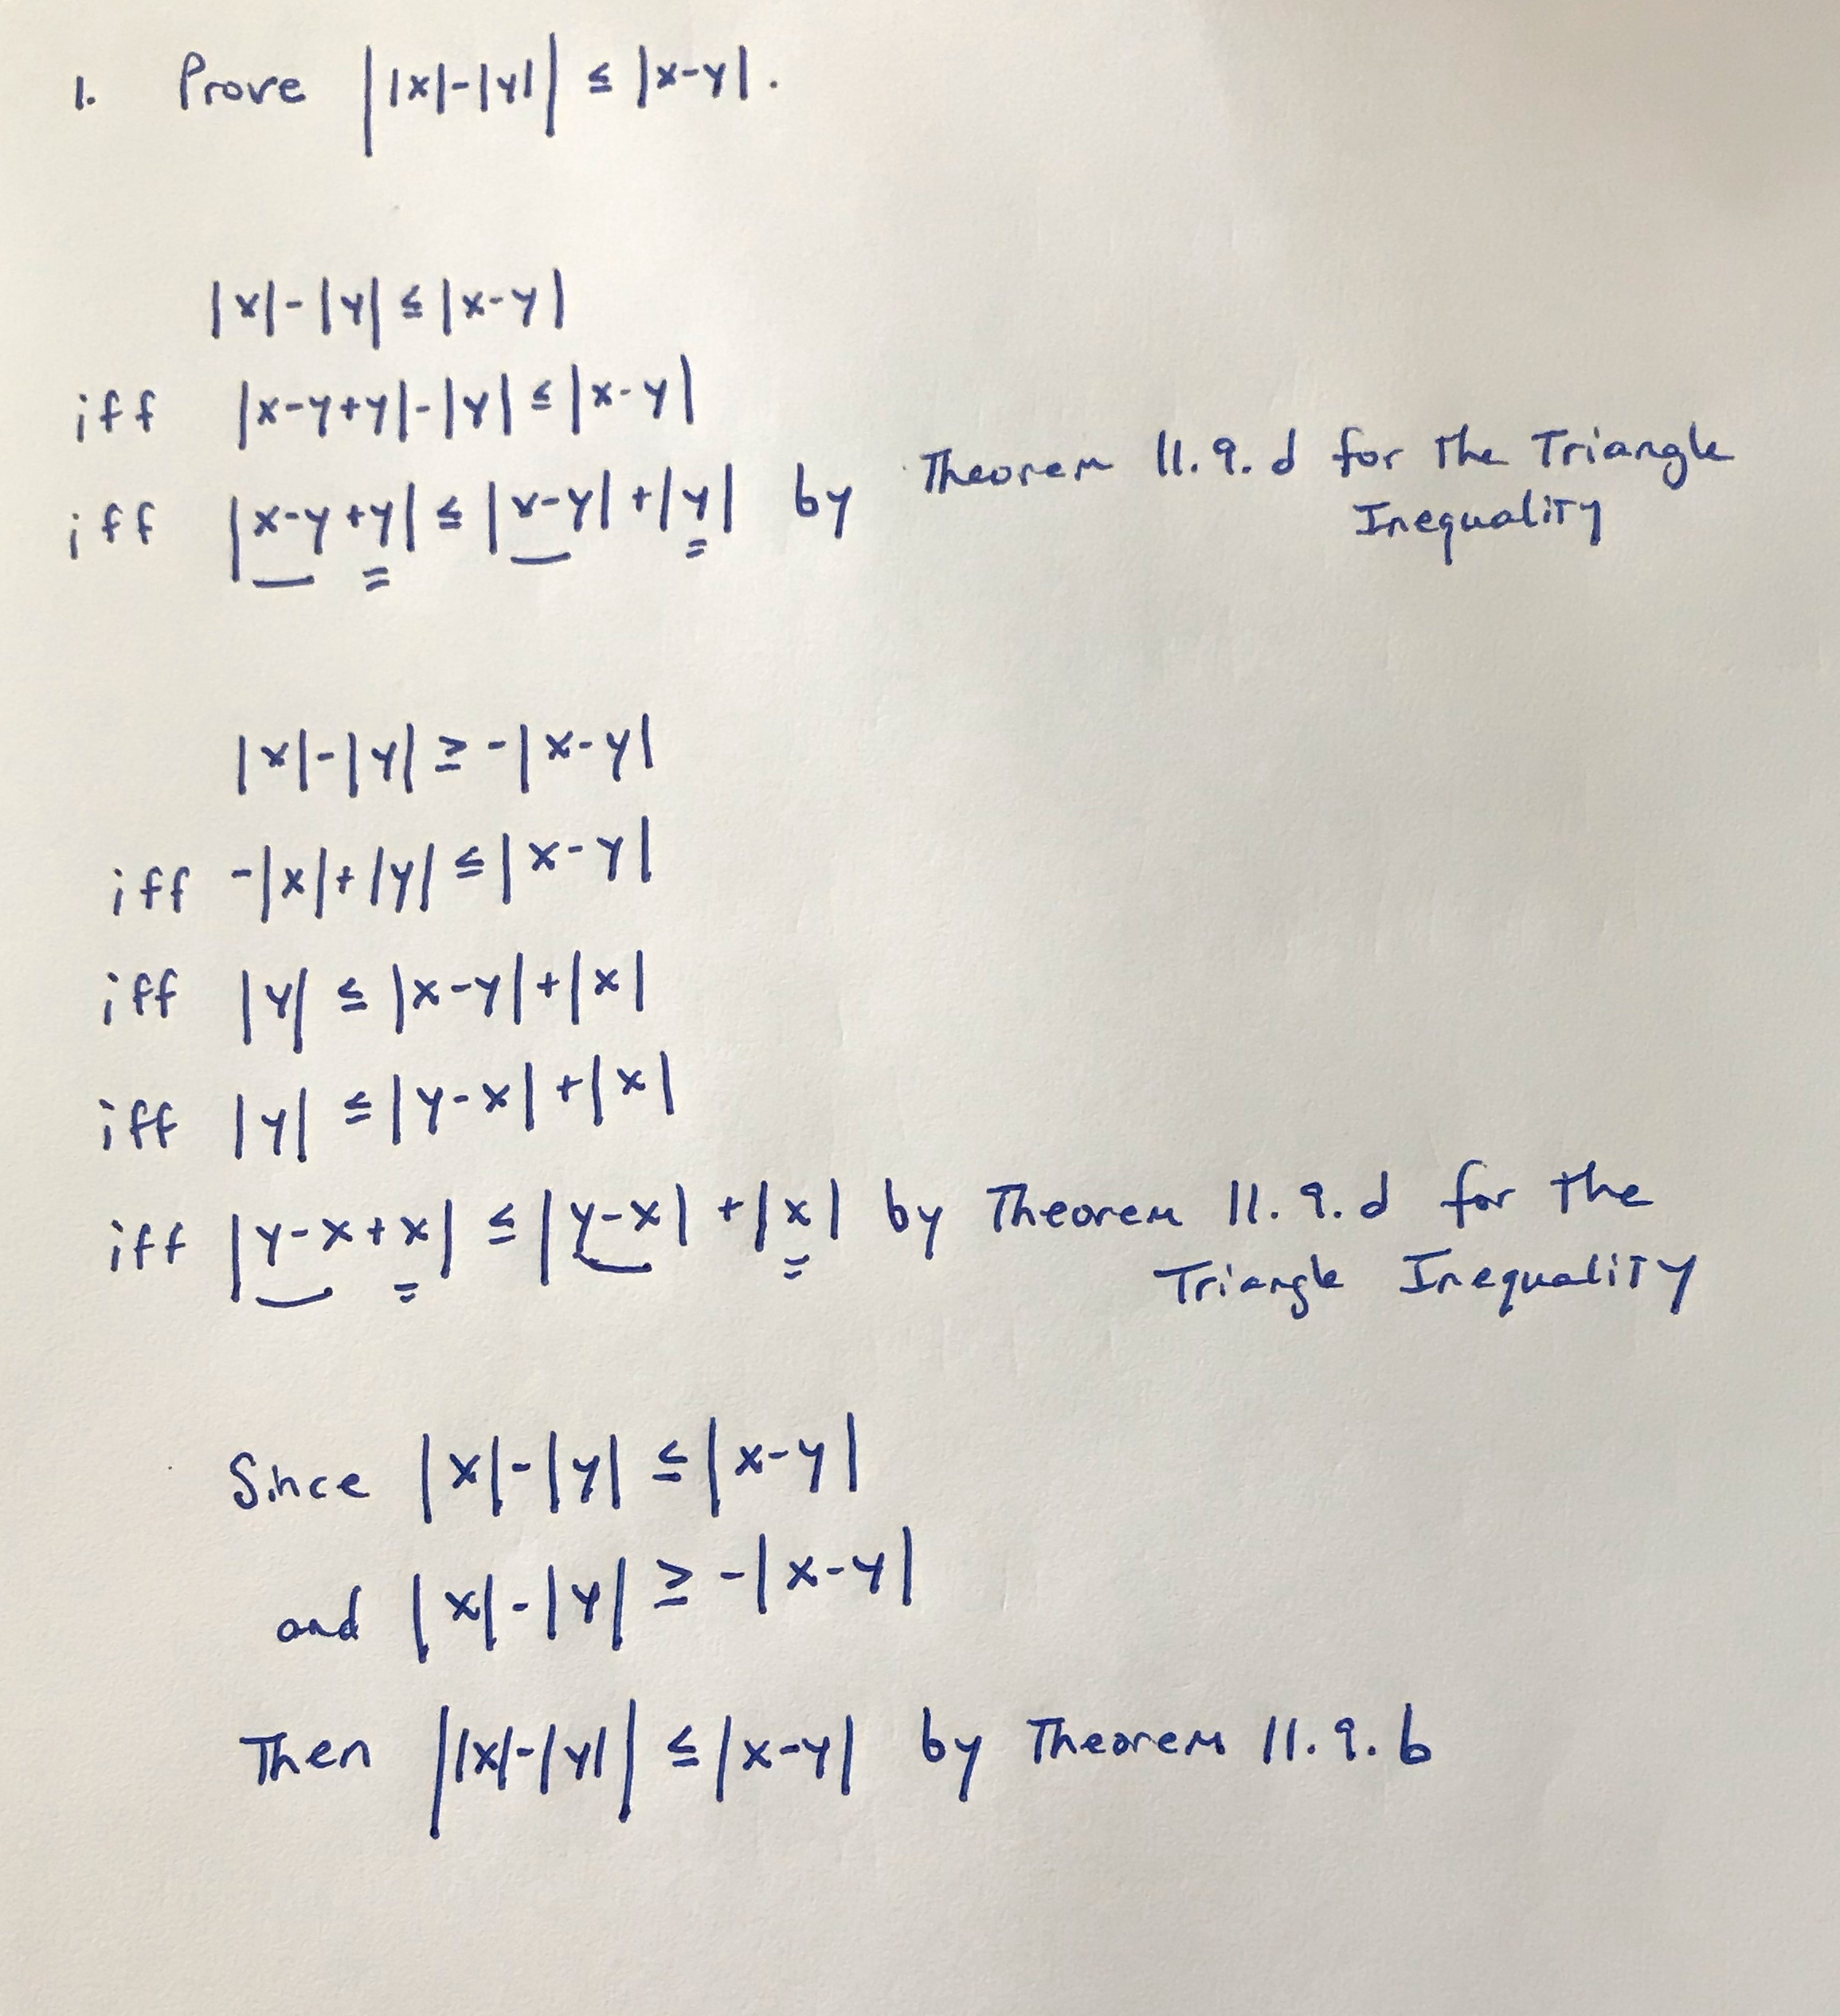 1. Prove ||x|-|y|| ≤ |x-y|.
|x|-|y| ≤ |x-y|
iff |x-y+y|-|y| ≤ |x-y|
iff |x-y+y| ≤ |x-y|+|y| by Theorem 11.9.d for the Triangle
Inequality
|x|-|y| ≥ -|x-y|
iff -|x|+|y| ≤ |x-y|
iff |y| ≤ |x-y|+|x|
iff |y| ≤ |y-x|+|x|
iff |y-x+x| ≤ |y-x|+|x| by Theorem 11.9.d for the
Triangle Inequality
Since |x|-|y| ≤ |x-y|
and |x|-|y| ≥ -|x-y|
Then ||x|-|y|| ≤ |x-y| by Theorem 11.9.b